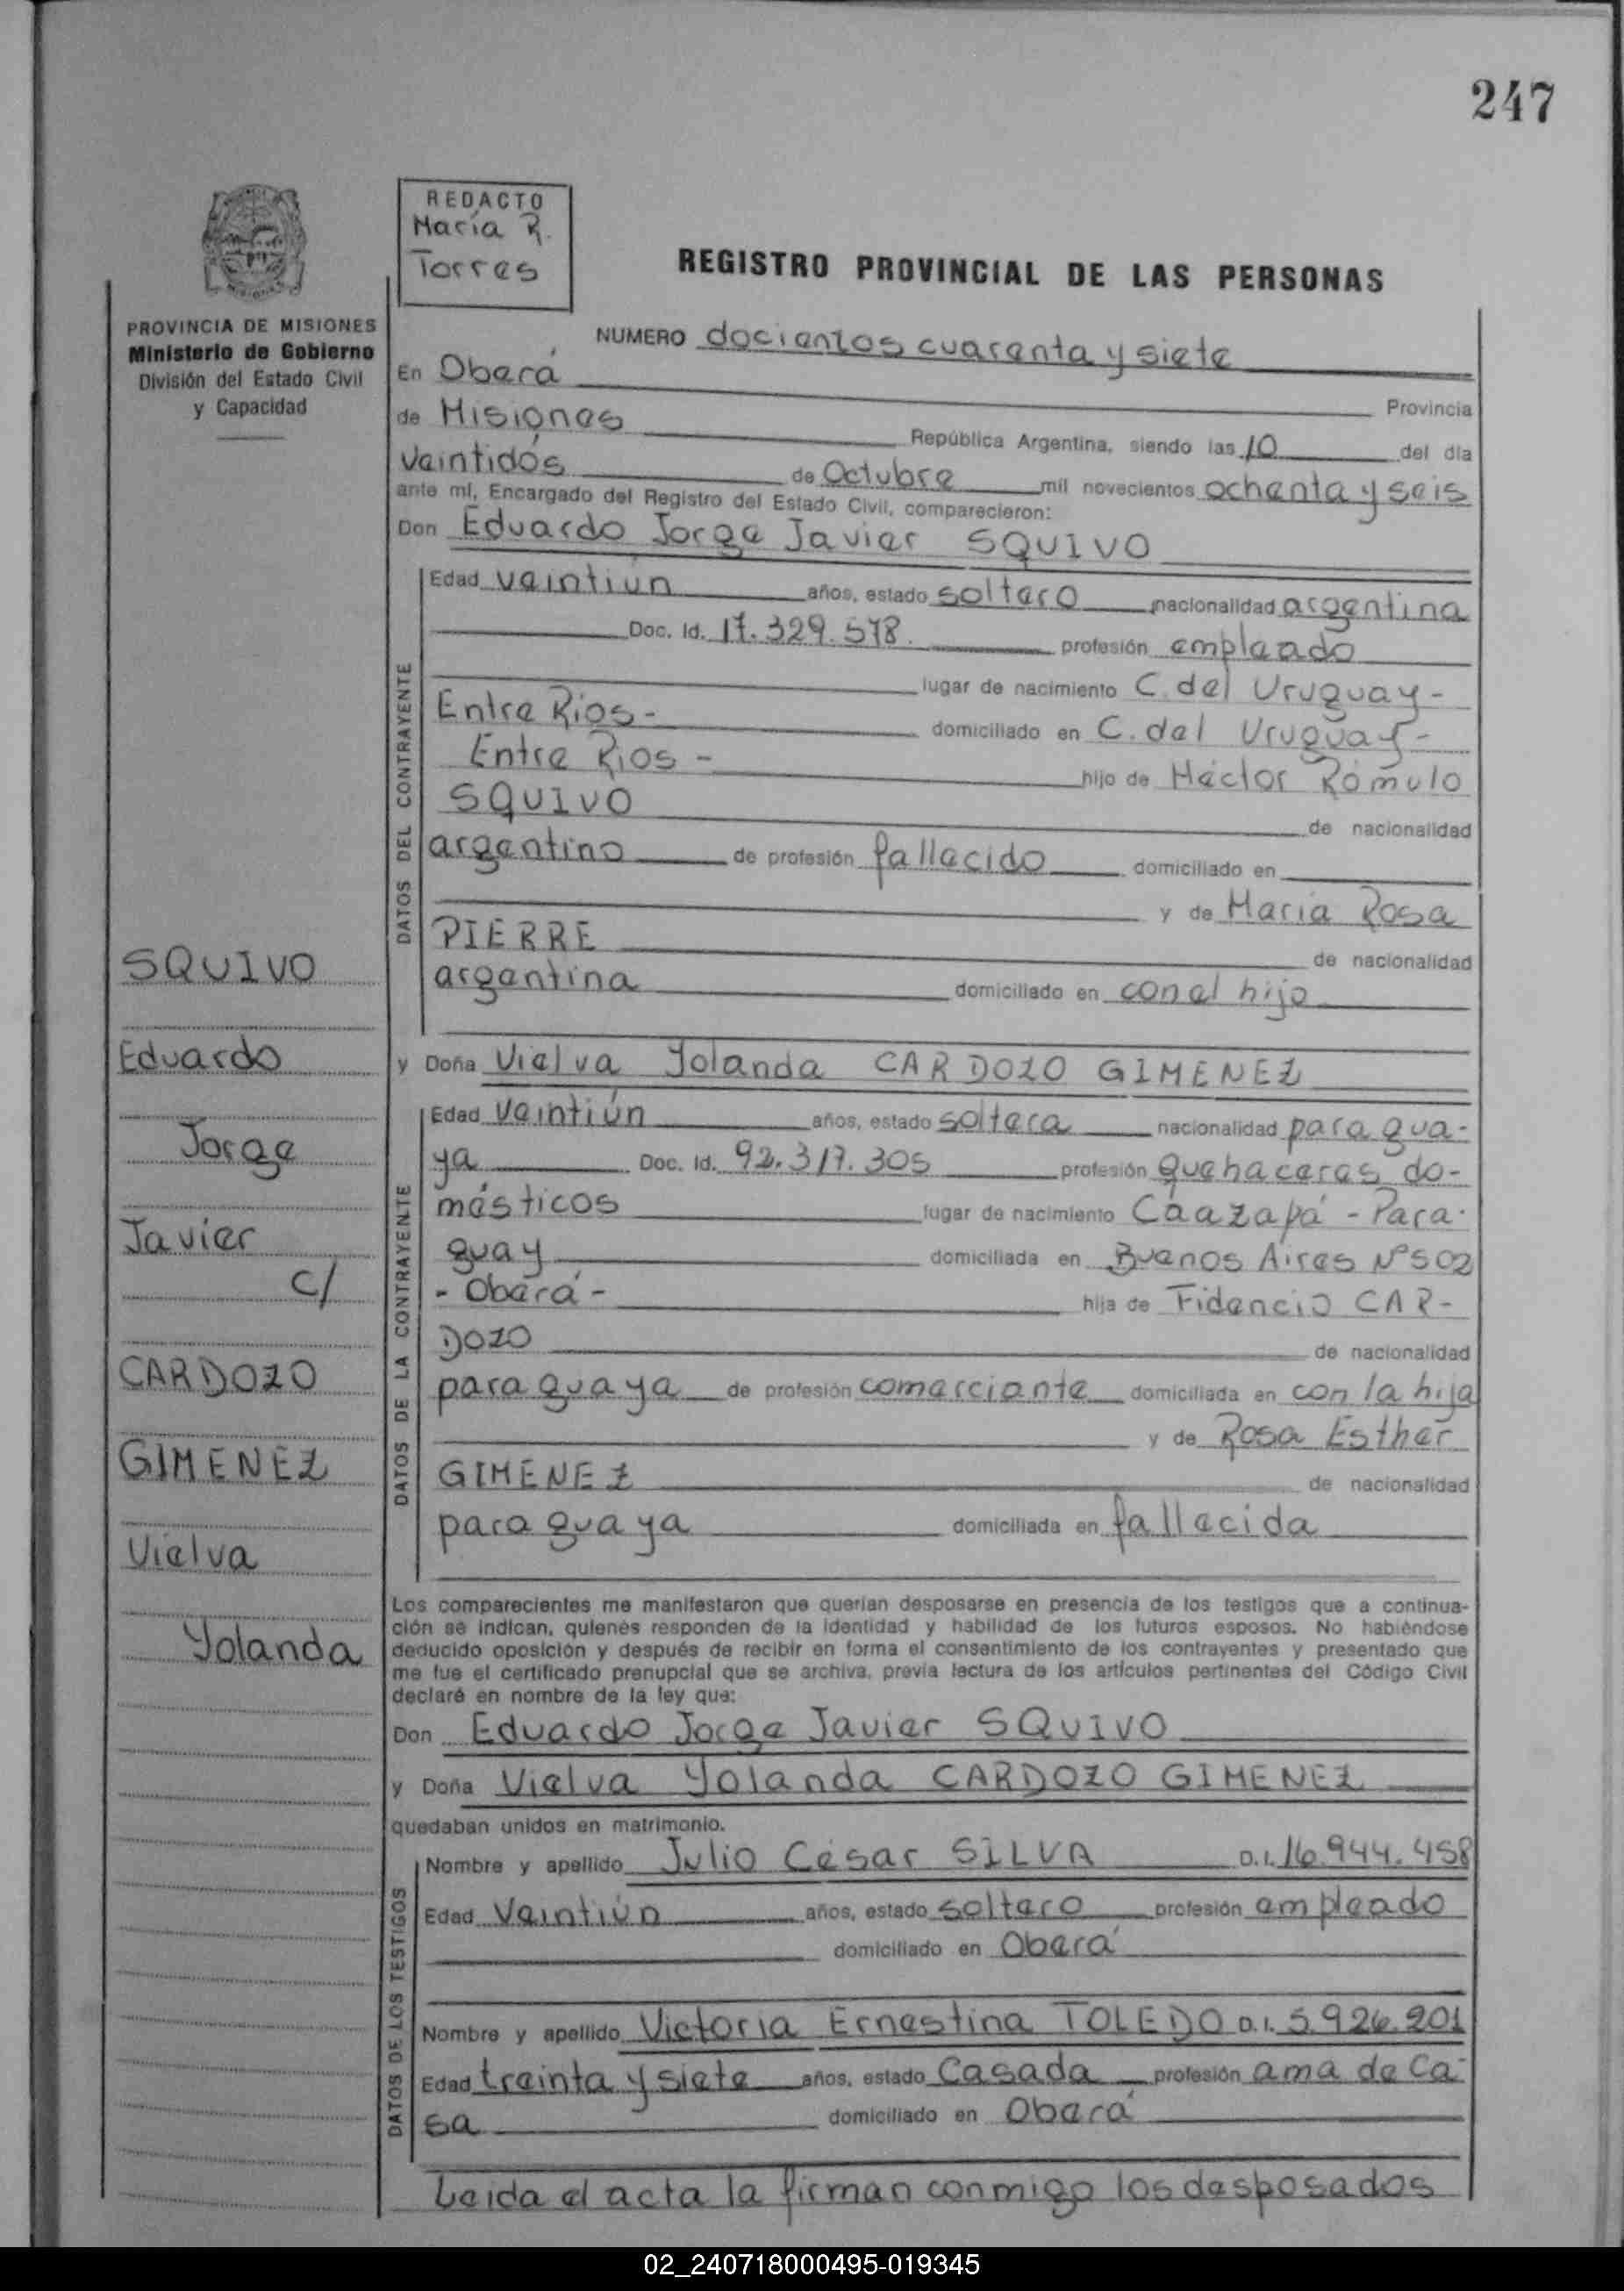 247
REDACTO
María R.
Torres
REGISTRO PROVINCIAL DE LAS PERSONAS
PROVINCIA DE MISIONES
Ministerio de Gobierno
División del Estado Civil
y Capacidad
NUMERO docientos cuarenta y siete
En Oberá Provincia
de Misiones República Argentina, siendo las 10 del día
veintidós de Octubre mil novecientos ochenta y seis
ante mí, Encargado del Registro del Estado Civil, comparecieron:
Don Eduardo Jorge Javier SQUIVO
DATOS DEL CONTRAYENTE
Edad veintiun años, estado soltero nacionalidad argentina
Doc. Id. 17.329.578. profesión empleado
lugar de nacimiento C. del Uruguay -
Entre Rios - domiciliado en C. del Uruguay -
Entre Rios - hijo de Héctor Rómulo
SQUIVO de nacionalidad
argentino de profesión fallecido domiciliado en
y de María Rosa
PIERRE de nacionalidad
argentina domiciliado en con el hijo
SQUIVO
Eduardo
Jorge
Javier
c/
CARDOZO
GIMENEZ
Vielva
Yolanda
y Doña Vielva Yolanda CARDOZO GIMENEZ
DATOS DE LA CONTRAYENTE
Edad veintiún años, estado soltera nacionalidad paragua-
ya Doc. Id. 92.317.305 profesión quehaceres do-
mésticos lugar de nacimiento Caazapá - Para-
guay domiciliada en Buenos Aires Nº 502
- Oberá - hija de Fidencio CAR-
DOZO de nacionalidad
paraguaya de profesión comerciante domiciliada en con la hija
y de Rosa Esther
GIMENEZ de nacionalidad
paraguaya domiciliada en fallecida
Los comparecientes me manifestaron que querían desposarse en presencia de los testigos que a continua-
ción se indican, quienes responden de la identidad y habilidad de los futuros esposos. No habiéndose
deducido oposición y después de recibir en forma el consentimiento de los contrayentes y presentado que
me fue el certificado prenupcial que se archiva, previa lectura de los artículos pertinentes del Código Civil
declaré en nombre de la ley que:
Don Eduardo Jorge Javier SQUIVO
y Doña Vielva Yolanda CARDOZO GIMENEZ
quedaban unidos en matrimonio.
DATOS DE LOS TESTIGOS
Nombre y apellido Julio César SILVA D.I. 16.944.458
Edad Veintiún años, estado soltero profesión empleado
domiciliado en Oberá
Nombre y apellido Victoria Ernestina TOLEDO D.I. 5.926.201
Edad treinta y siete años, estado Casada profesión ama de ca-
sa domiciliado en Oberá
Leida el acta la firman conmigo los desposados
02_240718000495-019345